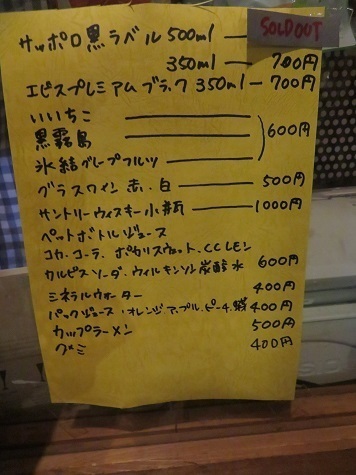 サッポロ黒ラベル 500ml — SOLD OUT
350ml — 700円
エビスプレミアムブラック 350ml — 700円
いいちこ
黒霧島 600円
氷結グレープフルーツ
グラスワイン 赤、白 500円
サントリーウィスキー小瓶 1000円
ペットボトルジュース
コカ・コーラ、ポカリスウェット、CCレモン
カルピスソーダ、ウィルキンソン炭酸水 600円
ミネラルウォーター 400円
パックジュース・オレンジ、アップル、ピーチ、 400円
カップラーメン 500円
グミ 400円